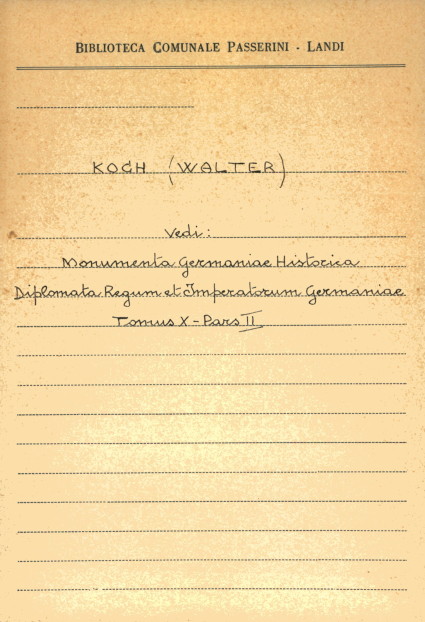 BIBLIOTECA COMUNALE PASSERINI - LANDI
KOCH (WALTER)
Vedi:
Monumenta Germaniae Historica
Diplomata Regum et Imperatorum Germaniae
Tomus X - Pars II